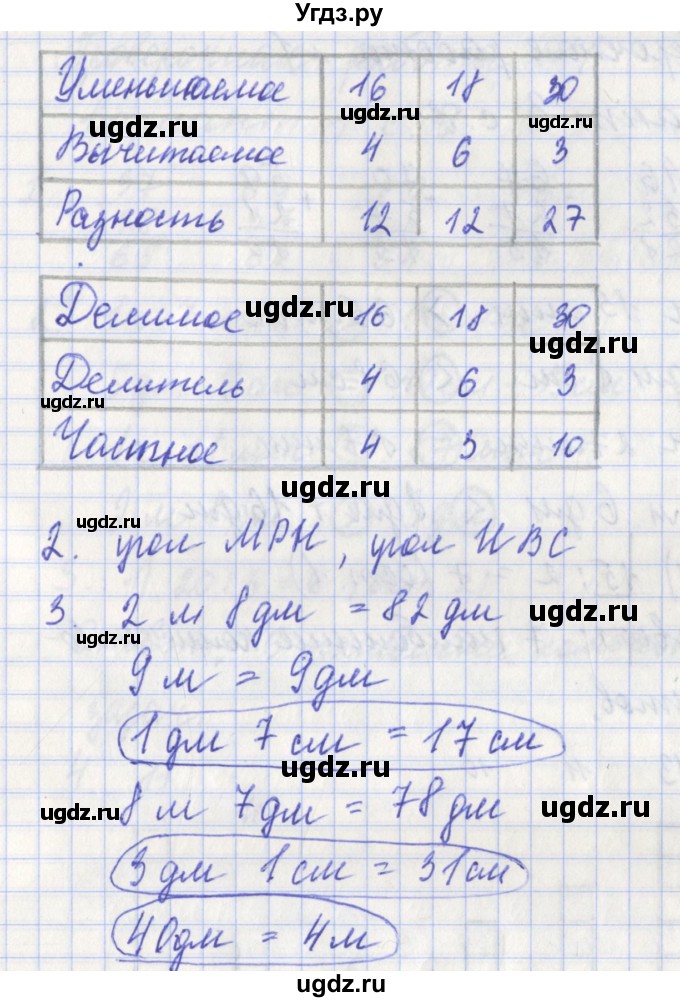 Угдз.ру
Уменьшаемое 16 18 30
ugdz.ru ugdz.ru ugdz.ru
Вычитаемое 4 6 3
Разность 12 12 27
Делимое 16 18 30
ugdz.ru ugdz.ru
Делитель 4 6 3
ugdz.ru
Частное 4 3 10
ugdz.ru
ugdz.ru
2. угол МРН, угол НВС
3. 2 м 8 дм = 82 дм
ugdz.ru ugdz.ru
9 м = 9 дм
1 дм 7 см = 17 см
ugdz.ru
8 м 7 дм = 78 дм
ugdz.ru ugdz.ru
3 дм 1 см = 31 см
40 дм = 4 м
ugdz.ru
ugdz.ru